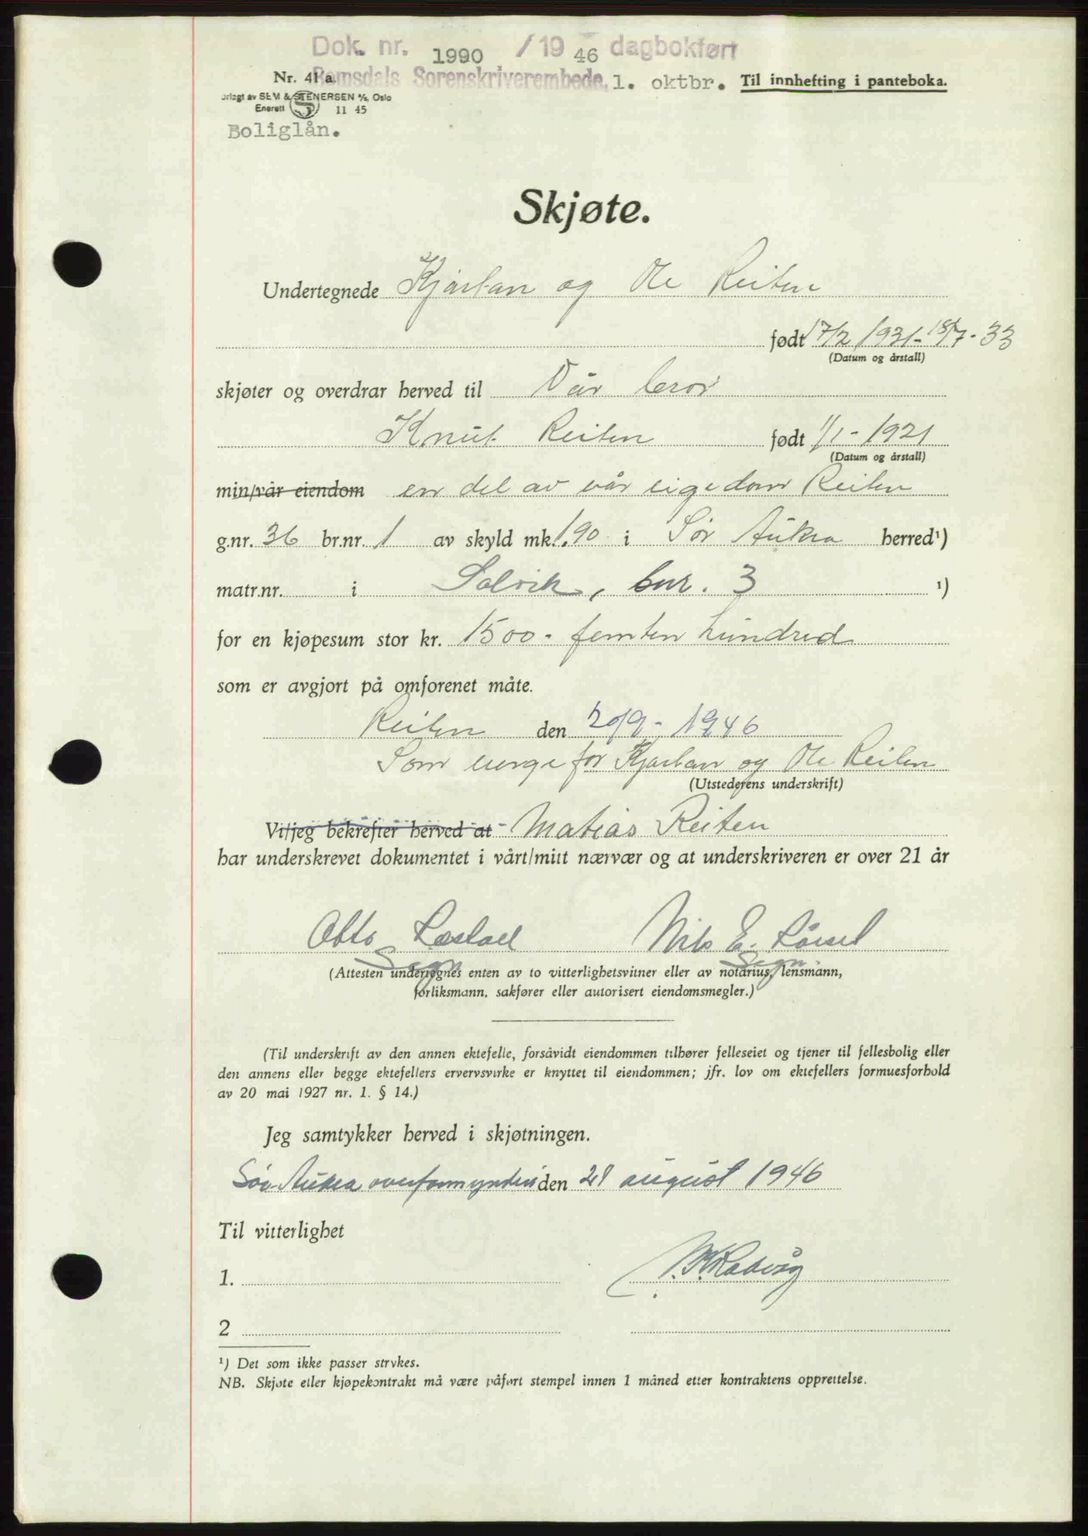 Dok. nr. 1990 /19 46 dagbokført
Nr. 41 a. Romsdals Sorenskriverembede, 1. oktbr. Til innhefting i panteboka.
SEM & STENERSEN A/S, Oslo
Enerett S 11 45
Boliglån.
Skjøte.
Undertegnede Kjartan og Ole Reiten
født 17/2 1931 - 18/7 - 33
(Datum og årstall)
skjøter og overdrar herved til Vår bror
Knut Reiten født 1/1 - 1921
(Datum og årstall)
min/vår eiendom en del av vår eigedom Reiten
g.nr. 36 br.nr. 1 av skyld mk. 1.90 i Sør Aukra herred¹)
matr.nr. i Solvik, bnr. 3 ¹)
for en kjøpesum stor kr. 1500 - femten hundred
som er avgjort på omforenet måte.
Reiten den 20/9 - 1946
Som verge for Kjartan og Ole Reiten
(Utstederens underskrift)
Vi/jeg bekrefter herved at - Matias Reiten
har underskrevet dokumentet i vårt/mitt nærvær og at underskriveren er over 21 år
Otto Nils E.
Sign Sign.
(Attesten undertegnes enten av to vitterlighetsvitner eller av notarius, lensmann,
forliksmann, sakfører eller autorisert eiendomsmegler.)
(Til underskrift av den annen ektefelle, forsåvidt eiendommen tilhører felleseiet og tjener til fellesbolig eller
den annens eller begge ektefellers ervervsvirke er knyttet til eiendommen; jfr. lov om ektefellers formuesforhold
av 20 mai 1927 nr. 1. § 14.)
Jeg samtykker herved i skjøtningen.
Sør-Aukra overformynderi den 21 august 1946
Til vitterlighet
1.
2
¹) Det som ikke passer strykes.
NB. Skjøte eller kjøpekontrakt må være påført stempel innen 1 måned etter kontraktens opprettelse.